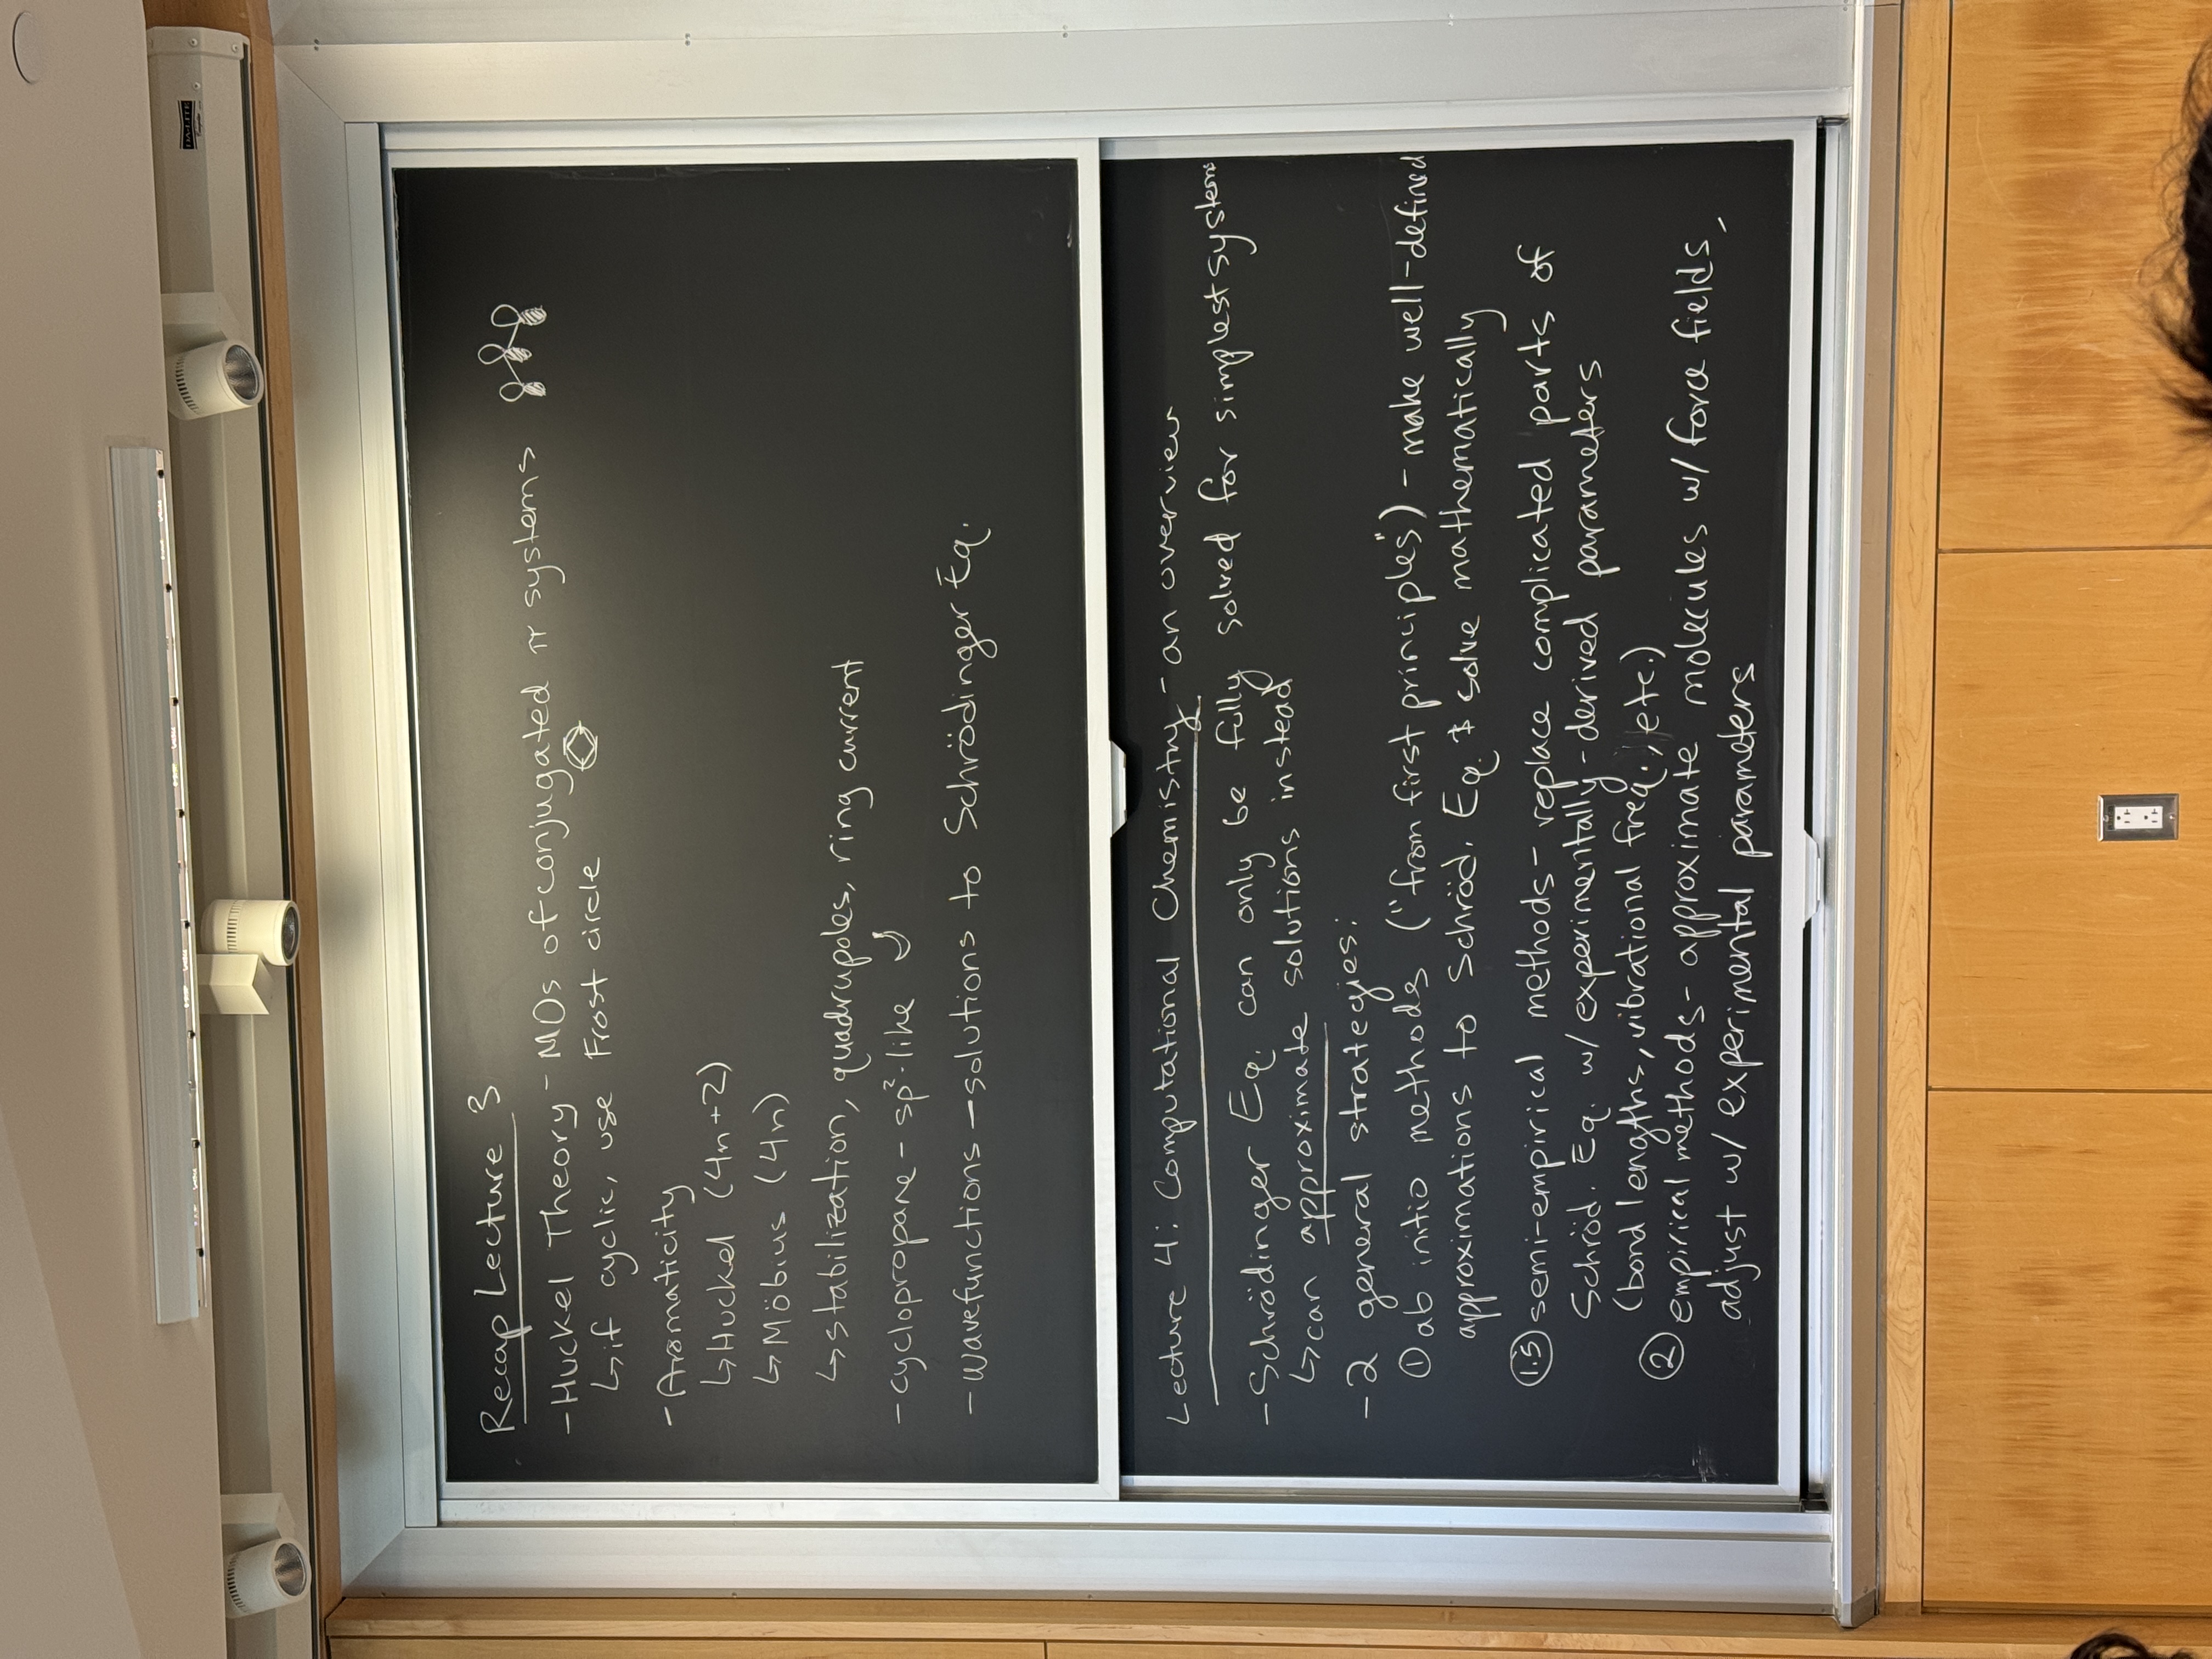 DA-LITE
Recap Lecture 3
-Huckel Theory - MOs of conjugated π systems
↳if cyclic, use Frost circle
-Aromaticity
↳Huckel (4n+2)
↳Möbius (4n)
↳stabilization, quadrupoles, ring current
-cyclopropane- sp²-like
-wavefunctions -solutions to Schrödinger Eq.
Lecture 4: Computational Chemistry - an overview
-Schrödinger Eq. can only be fully solved for simplest systems
↳can approximate solutions instead
-2 general strategies:
① ab initio methods ("from first principles") - make well-defined
approximations to Schröd. Eq. & solve mathematically
(1.5) semi-empirical methods- replace complicated parts of
Schröd. Eq. w/ experimentally-derived parameters
(bond lengths, vibrational freq., etc.)
② empirical methods- approximate molecules w/ force fields,
adjust w/ experimental parameters